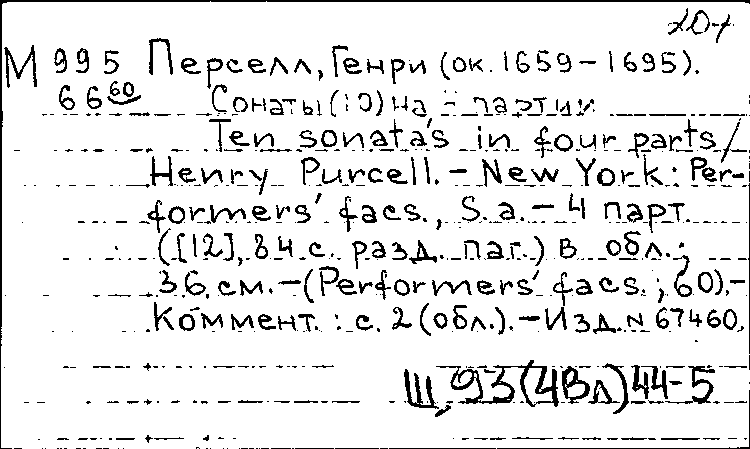 М 995 Перселл, Генри (ок. 1659-1695).
66 60 Сонаты (10) на партии
Ten sonata's in four parts/
Henry Purcell. - New York: Per-
formers' facs., S. a. - 4 парт.
([12], 84 с. разд. паг.) в обл.;
36 см. - (Performers' facs.; 60). -
Коммент.: с. 2 (обл.). - Изд. N 67460.
Щ, 93(4Вл)44-5